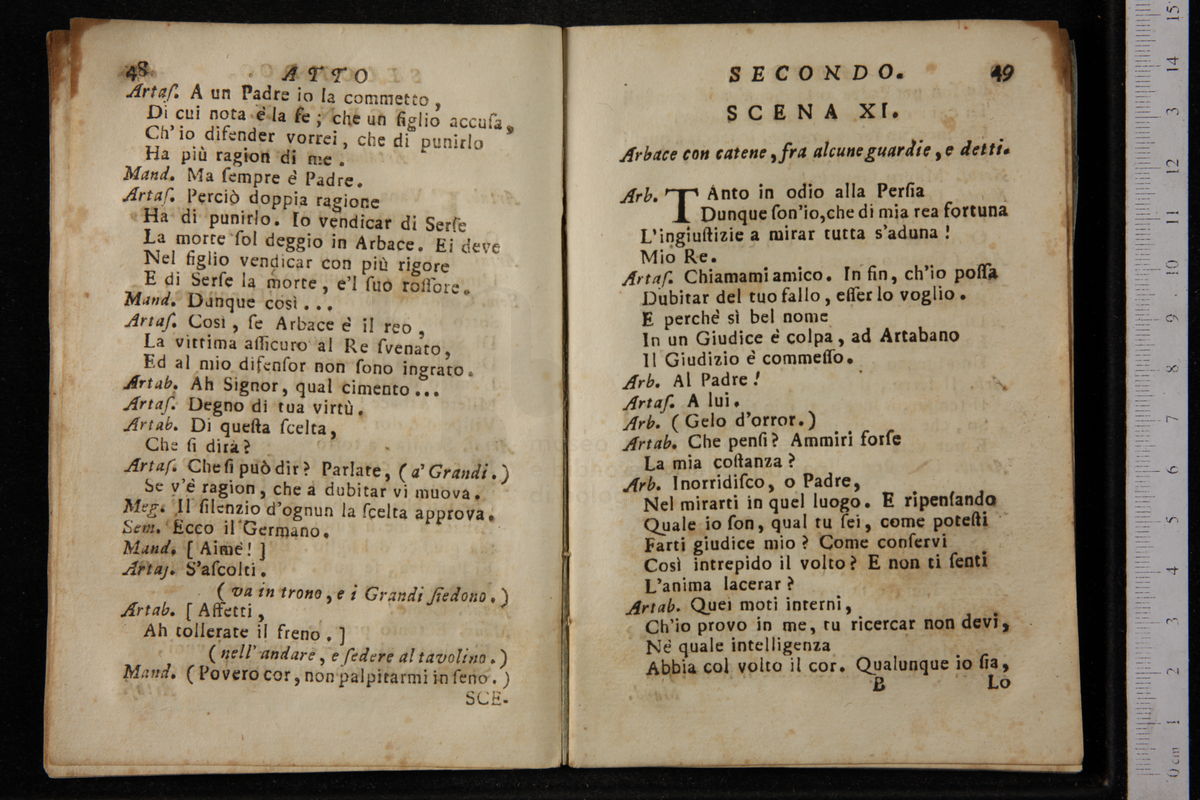 48 ATTO
Artaſ. A un Padre io la commetto,
Di cui nota è la fe; che un figlio accuſa,
Ch'io difender vorrei, che di punirlo
Ha più ragion di me.
Mand. Ma ſempre è Padre.
Artaſ. Perciò doppia ragione
Ha di punirlo. Io vendicar di Serſe
La morte ſol deggio in Arbace. Ei deve
Nel figlio vendicar con più rigore
E di Serſe la morte, e'l ſuo roſſore.
Mand. Dunque così...
Artaſ. Così, ſe Arbace è il reo,
La vittima aſſicuro al Re ſvenato,
Ed al mio difenſor non ſono ingrato.
Artab. Ah Signor, qual cimento...
Artaſ. Degno di tua virtù.
Artab. Di queſta ſcelta,
Che ſi dirà?
Artaſ. Che ſi può dir? Parlate, (a' Grandi.)
Se v'è ragion, che a dubitar vi muova.
Meg. Il ſilenzio d'ognun la ſcelta approva.
Sem. Ecco il Germano.
Mand. [Aimè!]
Artaſ. S'aſcolti.
(va in trono, e i Grandi ſiedono.)
Artab. [Affetti,
Ah tollerate il freno.]
(nell'andare, e ſedere al tavolino.)
Mand. (Povero cor, non palpitarmi in ſeno.)
SCE-
SECONDO. 49
SCENA XI.
Arbace con catene, fra alcune guardie, e detti.
Arb. TAnto in odio alla Perſia
Dunque ſon'io, che di mia rea fortuna
L'ingiuſtizie a mirar tutta s'aduna!
Mio Re.
Artaſ. Chiamami amico. In fin, ch'io poſſa
Dubitar del tuo fallo, eſſer lo voglio.
E perchè sì bel nome
In un Giudice è colpa, ad Artabano
Il Giudizio è commeſſo.
Arb. Al Padre!
Artaſ. A lui.
Arb. (Gelo d'orror.)
Artab. Che penſi? Ammiri forſe
La mia coſtanza?
Arb. Inorridiſco, o Padre,
Nel mirarti in quel luogo. E ripenſando
Quale io ſon, qual tu ſei, come poteſti
Farti giudice mio? Come conſervi
Così intrepido il volto? E non ti ſenti
L'anima lacerar?
Artab. Quei moti interni,
Ch'io provo in me, tu ricercar non devi,
Nè quale intelligenza
Abbia col volto il cor. Qualunque io ſia,
B Lo
0 cm 1 2 3 4 5 6 7 8 9 10 11 12 13 14 15